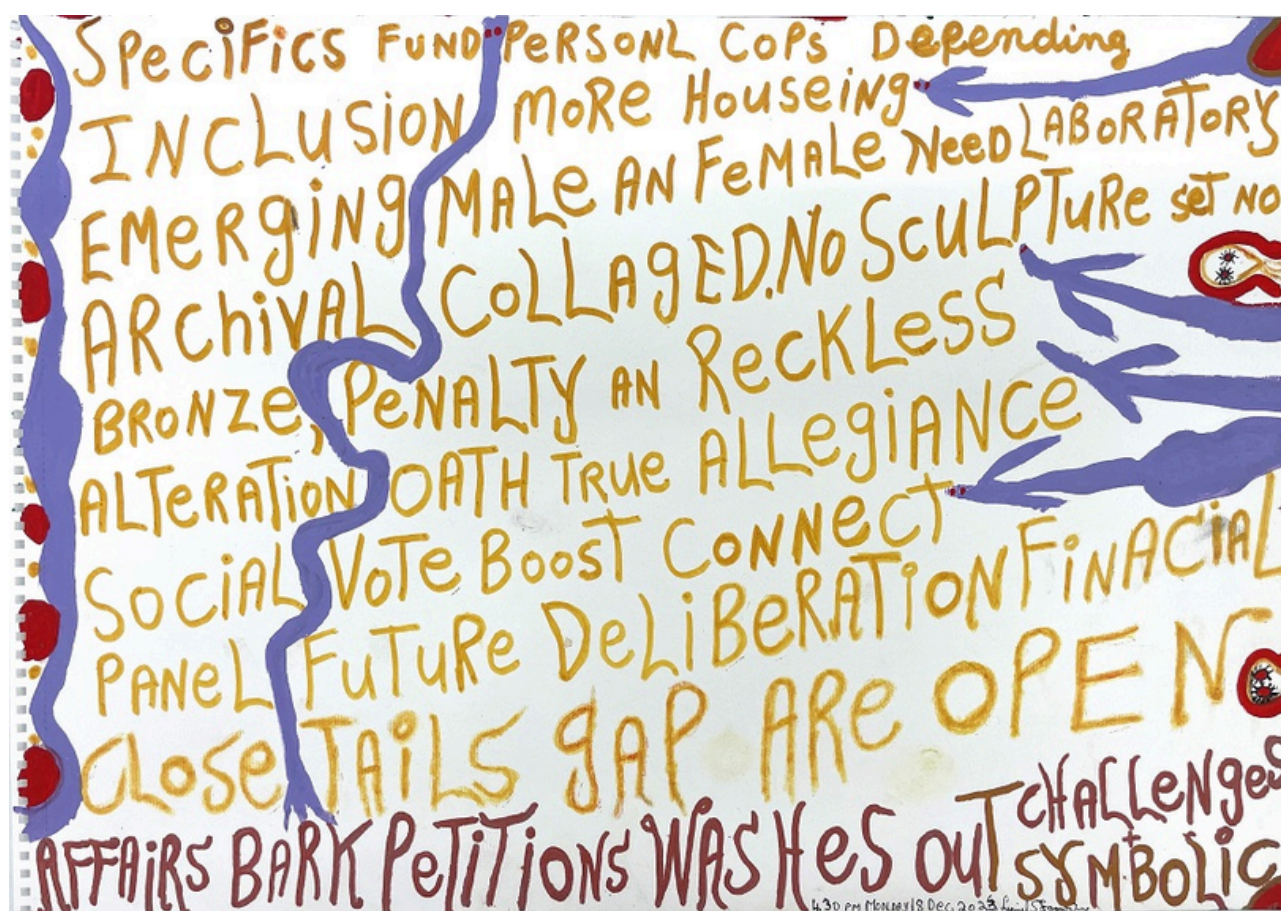 SPeciFics FUND PeRSONL CoPs Depending
INCLUSiON MoRe HouseiNg
EMeRgiNg MALe AN FeMALe NeeD LABoRAToRY
ARchiVAL CoLLAgED. No ScuLPTuRe seT No
BRoNZe, PeNALTY AN RecKLesS
ALTeRATioN OATH TRue ALLegiANCe
SociAL VoTe BoosT CoNNecT
PANeL FuTuRe DeLiBeRATioN FiNACiAL
CLose TAiLS gAP ARe OPEN
AFFAiRS BARK PeTiTioNs WASHes ouT CHALLeNges + SYMBoLic
4.30 PM MONDAY 18 Dec. 2023